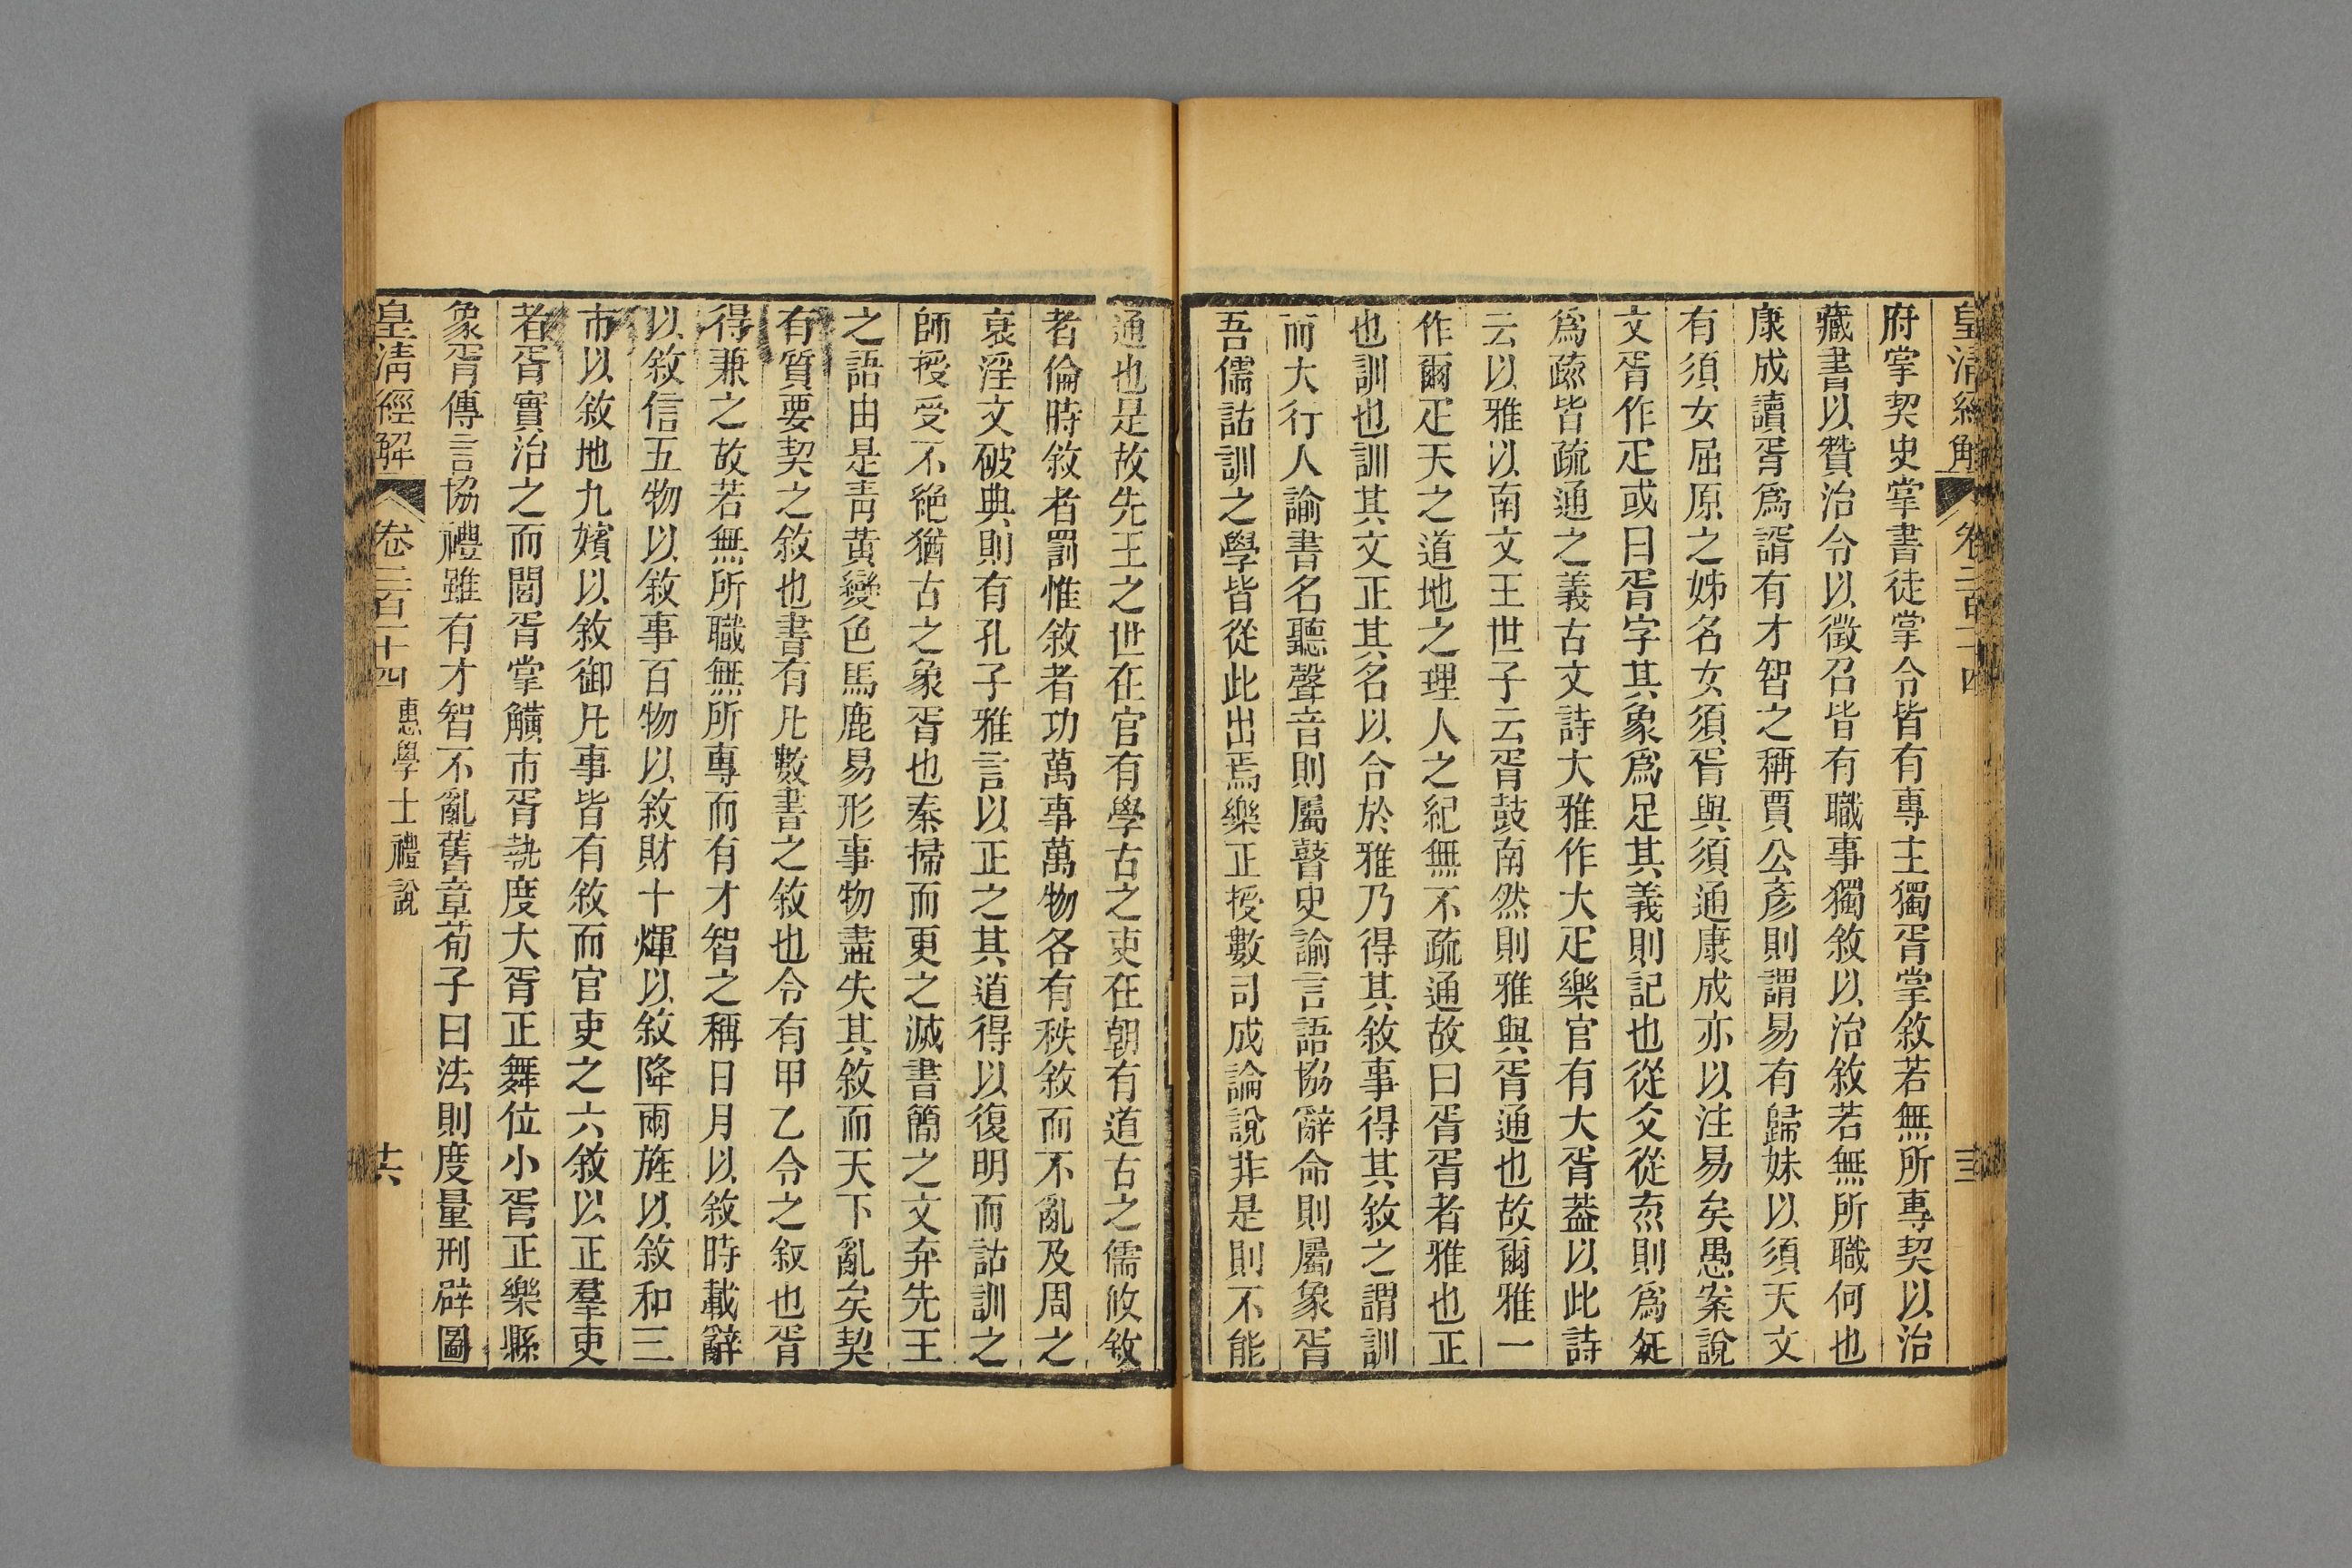 皇清經解 卷二百十四
府掌契史掌書徒掌令皆有專主獨胥掌敘若無所專契以治
藏書以贊治令以徵召皆有職事獨敘以治敘若無所職何也
康成讀胥爲諝有才智之稱賈公彥則謂易有歸妹以須天文
有須女屈原之姊名女須胥與須通康成亦以注易矣愚案說
文胥作疋或曰胥字其象爲足其義則記也從爻從㐬則爲𤕟
爲䟽皆疏通之義古文詩大雅作大疋樂官有大胥葢以此詩
云以雅以南文王世子云胥鼓南然則雅與胥通也故爾雅一
作爾疋天之道地之理人之紀無不疏通故曰胥胥者雅也正
也訓也訓其文正其名以合於雅乃得其敘事得其敘之謂訓
而大行人諭書名聽聲音則屬瞽史諭言語協辭命則屬象胥
吾儒詁訓之學皆從此出焉樂正授數司成論說非是則不能
通也是故先王之世在官有學古之吏在朝有道古之儒攸敘
者倫時敘者罰惟敘者功萬事萬物各有秩敘而不亂及周之
衰淫文破典則有孔子雅言以正之其道得以復明而詁訓之
師授受不絶猶古之象胥也秦掃而更之滅書簡之文弃先王
之語由是靑黃變色馬鹿易形事物盡失其敘而天下亂矣契
有質要契之敘也書有凡數書之敘也令有甲乙令之叙也胥
得兼之故若無所職無所專而有才智之稱日月以敘時載辭
以敘信五物以敘事百物以敘財十煇以敘降雨旌以敘和三
市以敘地九嬪以敘御凡事皆有敘而官吏之六敘以正羣吏
者胥實治之而閭胥掌觵市胥執度大胥正舞位小胥正樂縣
象胥傳言協禮雖有才智不亂舊章荀子曰法則度量刑辟圖
皇清經解 卷二百十四 惠學士禮說 共